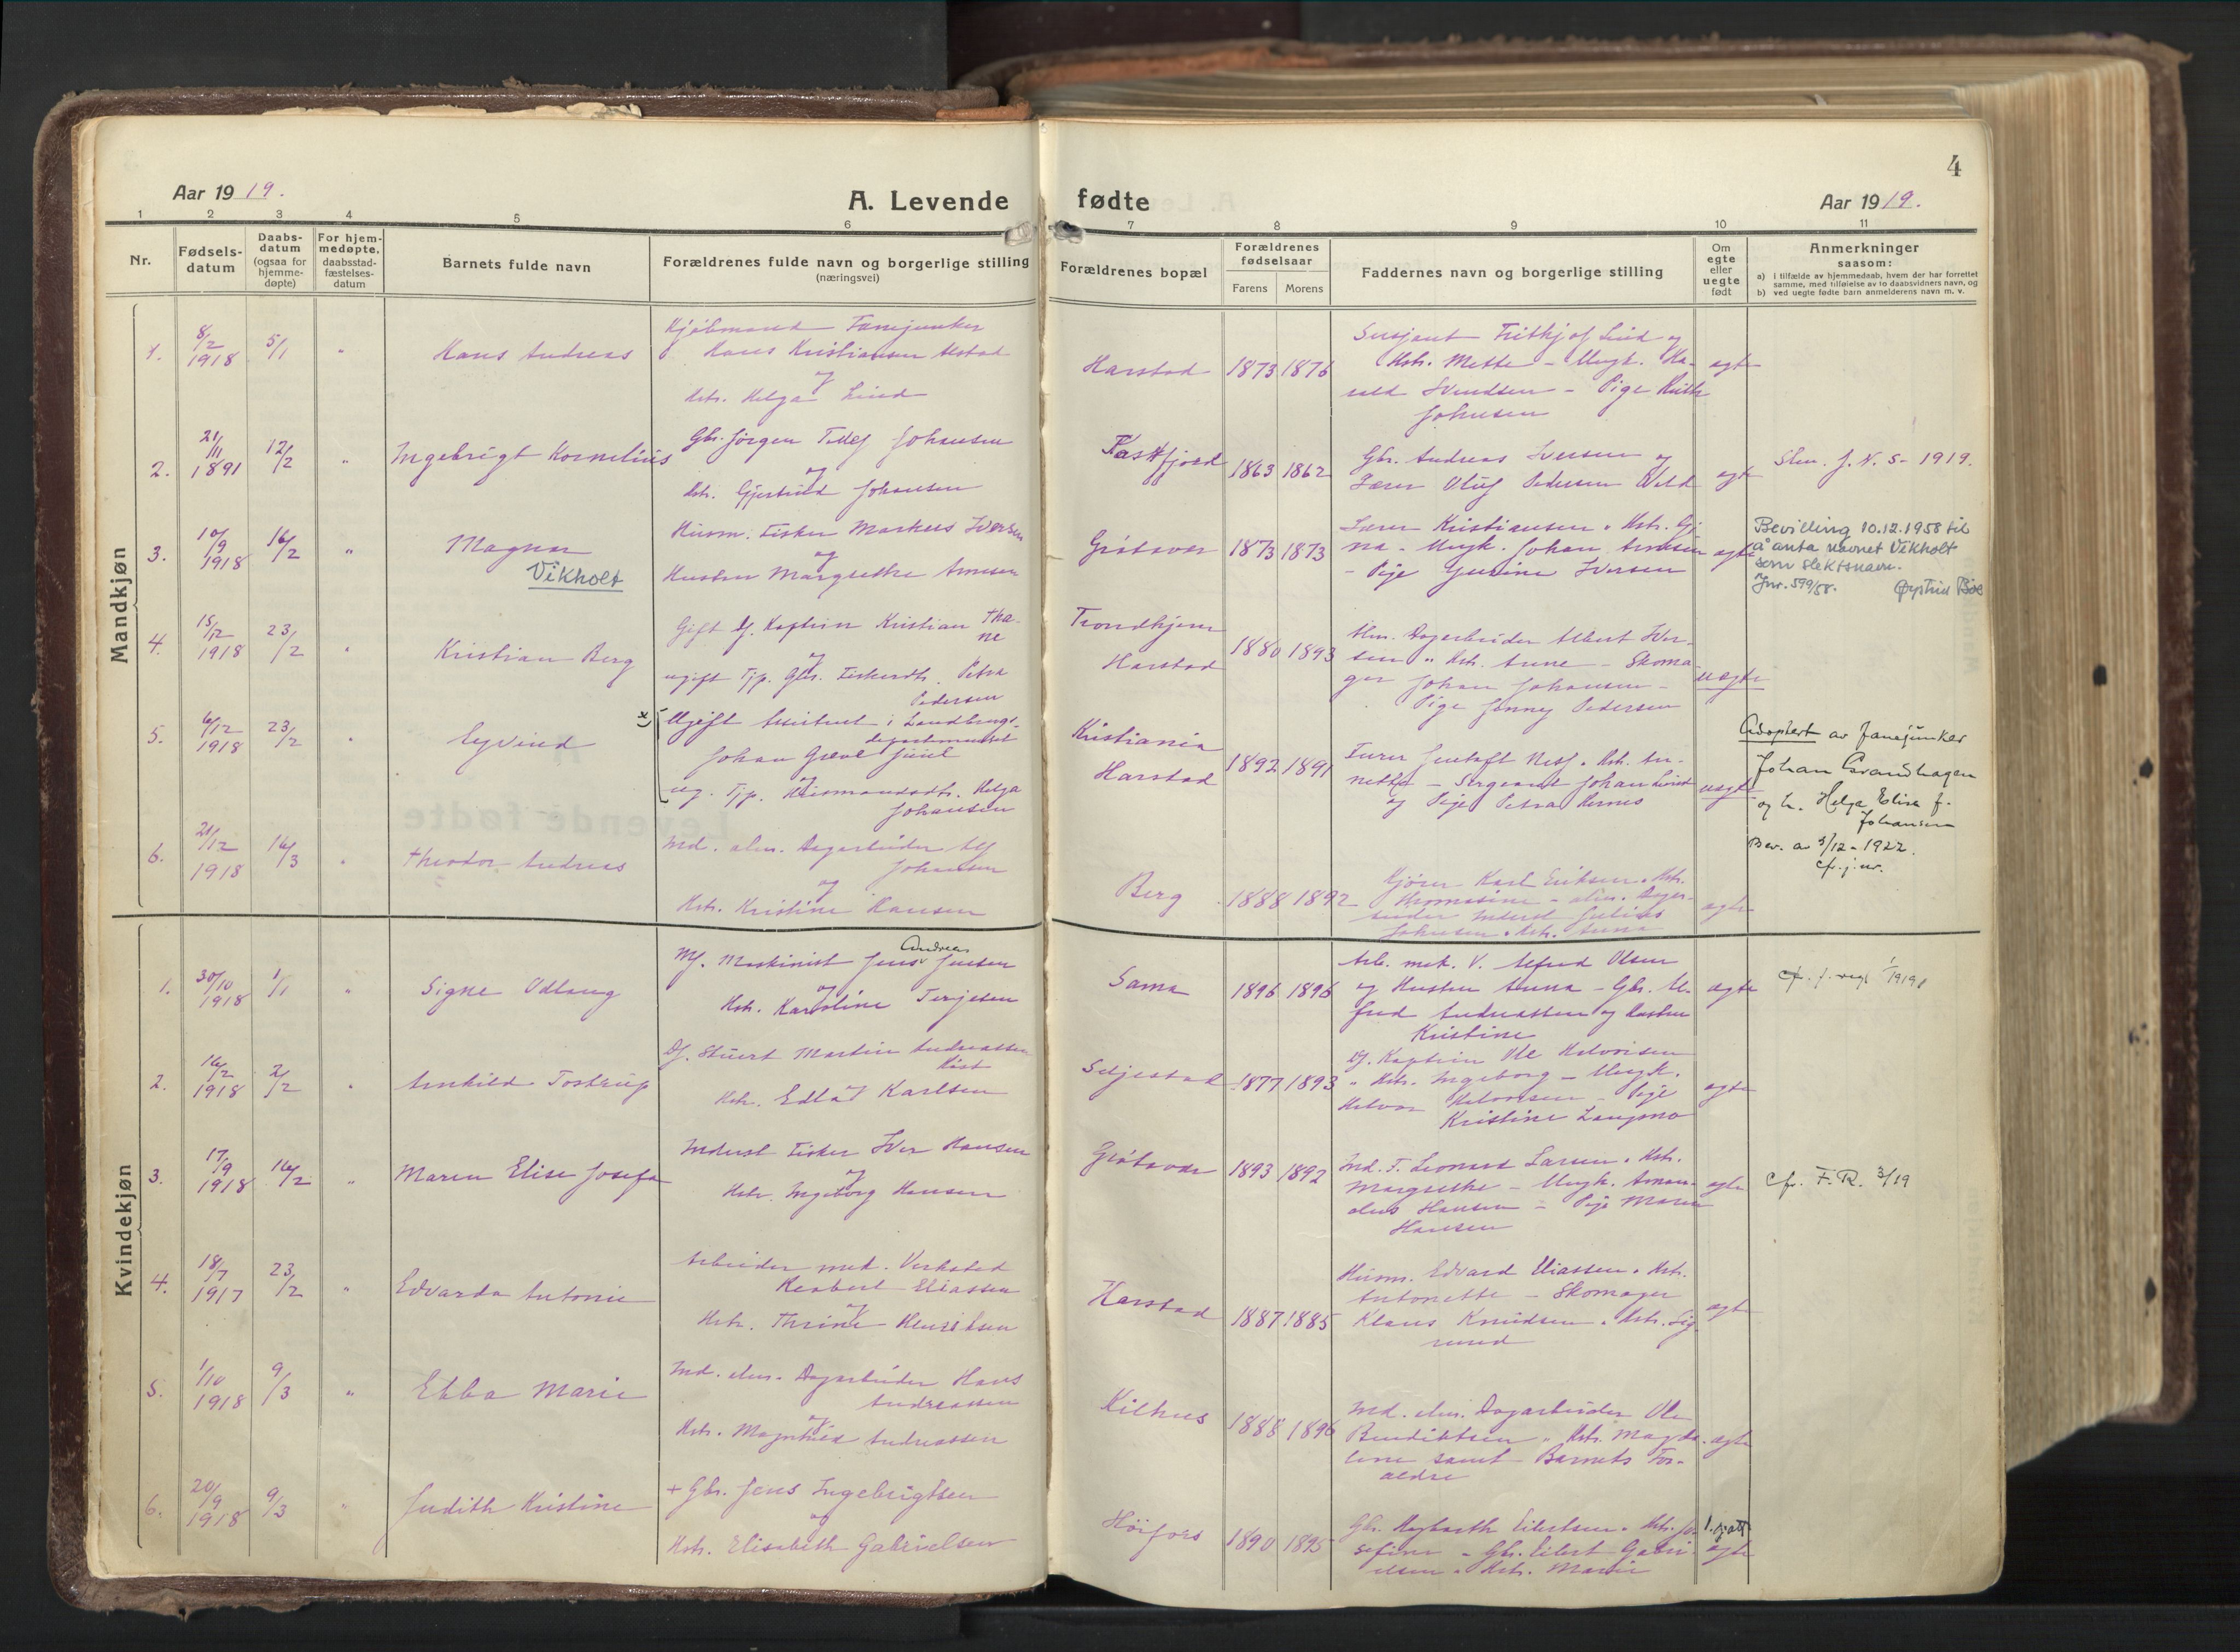 4
Aar 1919.
A. Levende fødte
Aar 1919.
1 2 3 4 5 6 7 8 9 10 11
Nr.
Fødsels-
datum
Daabs-
datum
(ogsaa for
hjemme-
døpte)
For hjem-
medøpte,
daabsstad-
fæstelses-
datum
Barnets fulde navn
Forældrenes fulde navn og borgerlige stilling
(næringsvei)
Forældrenes bopæl
Forældrenes
fødselsaar
Farens Morens
Faddernes navn og borgerlige stilling
Om
egte
eller
uegte
født
Anmerkninger
saasom:
a) i tilfælde av hjemmedaab, hvem der har forrettet
samme, med tilføielse av to daabsvidners navn, og
b) ved uegte fødte barn anmelderens navn m. v.
Mandkjøn
1. 8/2 1918 5/1 " Hans Andreas
Kjøbmand Fanejunker
Hans Kristiansen
og
Hstr. Helga Lind
Harstad 1873 1876
Sersjant Fritkjof Lind og
Hstr. Mette - Ungk. Ha-
rald Svendsen - Pige Ruth
Johnsen
egte
2. 21/11 1891 12/2 " Ingebrigt Kornelius
Gbr. Jørgen Johansen
og
Hstr. Gjertrud Johansen
Kastfjord 1863 1862
Gbr. Andreas Iversen og
Lærer Oluf Pedersen
egte
1919.
3. 10/9 1918 16/2 " Magnar
Vikholt
Husm. Fisker Markus Iversen
og
Hustru Margrethe Arnesen
Grøtavær 1873 1873
Kristiansen " Hstr. Gi
na - Ungk. Johan Arnesen
- Pige Gurine Iversen
egte
Bevilling 10.12.1958 til
å anta navnet Vikholt
som slektsnavn.
Jnr. 599/58. Øystein Bøe
4. 15/12 1918 23/2 " Kristian Berg
Gift Kaptein Kristian Tha-
ne
og
ugift Tjp. Gbr. Fiskerdtr. Petra
Pedersen
Trondhjem
Harstad
1880 1893
Alm. Dagarbeider Albert Iver-
sen " Hstr. Anne - Skoma-
ger Johan Johansen -
Pige Jenny Pedersen
uegte
5. 6/12 1918 23/2 " Eyvind
Ugift Assistent i Landbrugs-
departementet
Johan Greve Juul
og
ug. Tjp. Husmandsdtr. Helga
Johansen
Kristiania
Harstad
1892 1891
Hstr. An-
nette - Sergeant Johan
og Pige Petra Hernes
uegte
Adoptert av fanejunker
Johan Grandhagen
og h. Helga Elise f.
Johansen
Bev. av 3/12-1922.
cfr. j.nr.
6. 21/12 1918 16/3 " Theodor Andreas
Ind. alm. Dagarbeider
Johansen
og
Hstr. Kristine Hansen
Berg 1888 1892
Kjører Karl Eriksen " Hstr.
Thomasine - alm. Dagar-
beider Inderst Julius
Johnsen " Hstr. Anna
egte
Kvindekjøn
1. 30/10 1918 1/1 " Signe Odlaug
Andreas
Mf. Maskinist Jens Jensen
og
Hstr. Karoline Terjesen
Sama 1896 1896
Arb. mek. V. Alfred Olsen
og Hustru Anna - Gbr. Al-
fred Andreassen og Hustru
Kristine
egte
2. 16/2 1918 2/2 " Arnhild Tostrup
Df. Stuert Martin Andreassen
Hstr. Edla Karlsen
Seljestad 1877 1893
Df. Kaptein Ole Halvorsen
" Hstr. Ingeborg - Ungk.
Halvor Halvorsen - Pige
Kristine Langmo
egte
3. 17/9 1918 16/2 " Maren Elise Josefa
Inderst Fisker Iver Hansen
og
Hstr. Ingeborg Hansen
Grøtavær 1893 1892
Ind. F. Leonard Larsen " Hstr.
Margrethe - Ungk. Aman-
dus Hansen - Pige Maren
Hansen
egte
cfr. F.R. 3/19
4. 18/7 1917 23/2 " Edvarda Antonie
Arbeider mek. Verksted
Herbert Eliassen
og
Hstr. Thrine Henriksen
Harstad 1887 1885
Husm. Edvard Eliassen " Hstr.
Antonette - Skomager
Klaus Knudsen " Hstr. Sig-
rund
egte
5. 1/10 1918 9/3 " Ebba Marie
Ind. alm. Dagarbeider Hans
Andreassen
og
Hstr. Magnhild Andreassen
Kilhus 1888 1896
Ind. alm. Dagarbeider Ole
Bendiktsen " Hstr. Magda-
lene samt Barnets For-
ældre
egte
6. 20/9 1918 9/3 " Judith Kristine
+ Gbr. Jens Ingebrigtsen
og
Hstr. Elisabeth Gabrielsen
1890 1895
Gbr. Hagbarth Eilertsen " Hstr. Jo-
sefine - Gbr. Eilert Gabri-
elsen " Hstr. Marie
egte